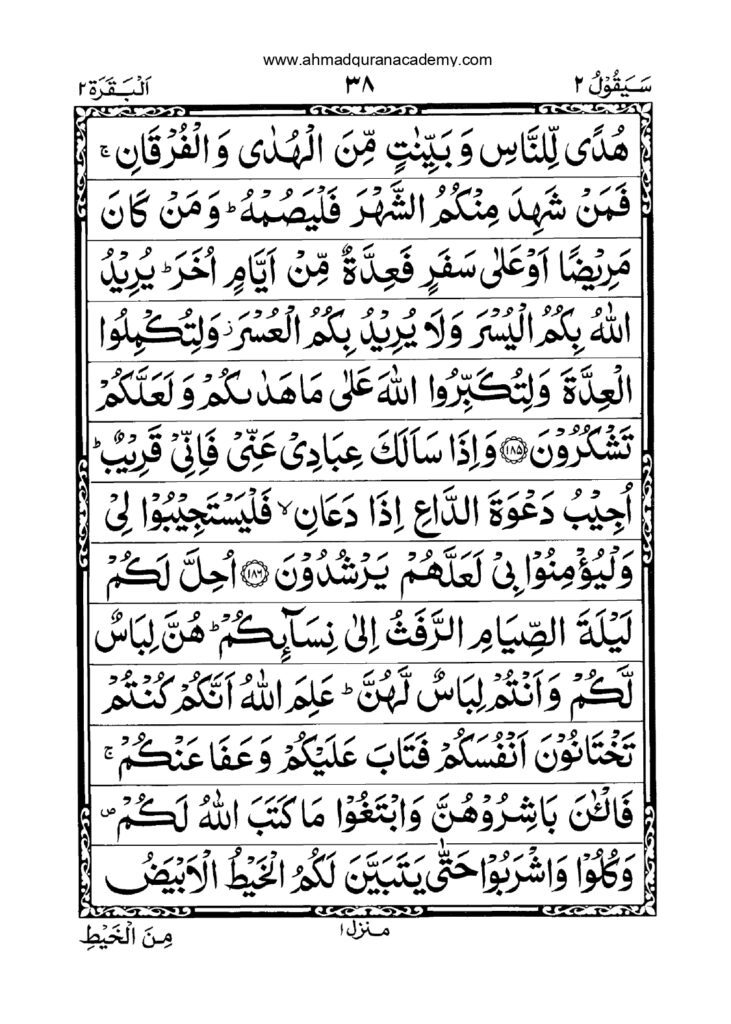 www.ahmadquranacademy.com
سَيَقُوْلُ ٢ ٣٨ اَلْبَقَرَة ٢
هُدًى لِّلنَّاسِ وَ بَيِّنٰتٍ مِّنَ الْهُدٰى وَ الْفُرْقَانِ ۚ
فَمَنْ شَهِدَ مِنْكُمُ الشَّهْرَ فَلْيَصُمْهُ ؕ وَ مَنْ كَانَ
مَرِيْضًا اَوْ عَلٰى سَفَرٍ فَعِدَّةٌ مِّنْ اَيَّامٍ اُخَرَ ؕ يُرِيْدُ
اللّٰهُ بِكُمُ الْيُسْرَ وَلَا يُرِيْدُ بِكُمُ الْعُسْرَ ؗ وَلِتُكْمِلُوا
الْعِدَّةَ وَلِتُكَبِّرُوا اللّٰهَ عَلٰى مَا هَدٰىكُمْ وَ لَعَلَّكُمْ
تَشْكُرُوْنَ ﴿۱۸۵﴾ وَاِذَا سَاَلَكَ عِبَادِىْ عَنِّىْ فَاِنِّىْ قَرِيْبٌ ؕ
اُجِيْبُ دَعْوَةَ الدَّاعِ اِذَا دَعَانِ ۙ فَلْيَسْتَجِيْبُوْا لِىْ
وَلْيُؤْمِنُوْا بِىْ لَعَلَّهُمْ يَرْشُدُوْنَ ﴿۱۸۶﴾ اُحِلَّ لَكُمْ
لَيْلَةَ الصِّيَامِ الرَّفَثُ اِلٰى نِسَآئِكُمْ ؕ هُنَّ لِبَاسٌ
لَّكُمْ وَ اَنْتُمْ لِبَاسٌ لَّهُنَّ ؕ عَلِمَ اللّٰهُ اَنَّكُمْ كُنْتُمْ
تَخْتَانُوْنَ اَنْفُسَكُمْ فَتَابَ عَلَيْكُمْ وَ عَفَا عَنْكُمْ ۚ
فَالْـٰٔنَ بَاشِرُوْهُنَّ وَ ابْتَغُوْا مَا كَتَبَ اللّٰهُ لَكُمْ ۪
وَ كُلُوْا وَاشْرَبُوْا حَتّٰى يَتَبَيَّنَ لَكُمُ الْخَيْطُ الْاَبْيَضُ
منزل ١
مِنَ الْخَيْطِ